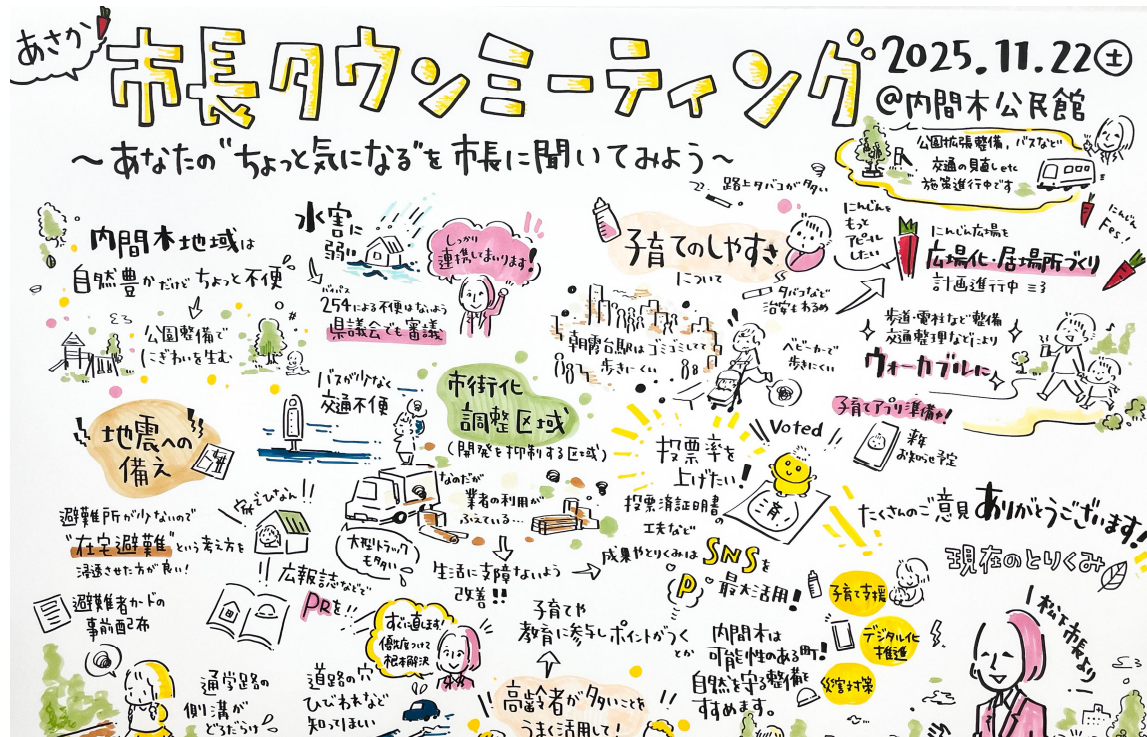 あさか
市長タウンミーティング
2025.11.22㊏
@内間木公民館
〜あなたの"ちょっと気になる"を市長に聞いてみよう〜
公園拡張整備、バスなど
交通の見直しetc
施策進行中です
内間木地域は
自然豊かだけどちょっと不便
公園整備で
にぎわいを生む
水害に
弱い
しっかり
連携してまいります!
バイパス
254による不便はないよう
県議会でも審議
バスが少なく
交通不便
市街化
調整区域
(開発を抑制する区域)
なのだが
業者の利用が
ふえている…
大型トラック
も多い
生活に支障ないよう
改善!!
地震への
備え
家でひなん!
避難所が少ないので
"在宅避難"という考え方を
浸透させた方が良い!
避難者カードの
事前配布
広報誌などで
PRを!!
通学路の
側溝が
どろだらけ
道路の穴
ひびわれなど
知ってほしい
すぐに直します!
優先度つけて
根本解決
路上タバコが多い
子育てのしやすさ
について
タバコなど
治安もわるめ
朝霞台駅はゴミゴミしてて
歩きにくい
ベビーカーで
歩きにくい
にんじんを
もっと
アピール
したい
にんじん
Fes!
にんじん広場を
広場化・居場所づくり
計画進行中
歩道・電柱など整備
交通整理などにより
ウォーカブルに
子育てアプリ準備中!
来年
お知らせ予定
投票率を
上げたい!
Voted
済!
投票済証明書の
工夫など
成果やとりくみは SNSを
最大活用!
P
子育てや
教育に参与しポイントがつく
とか
高齢者が多いことを
うまく活用して!
内間木は
可能性のある町!
自然を守る整備を
すすめます。
たくさんのご意見ありがとうございます!
現在のとりくみ
子育て支援
デジタル化
推進
災害対策
松下市長より